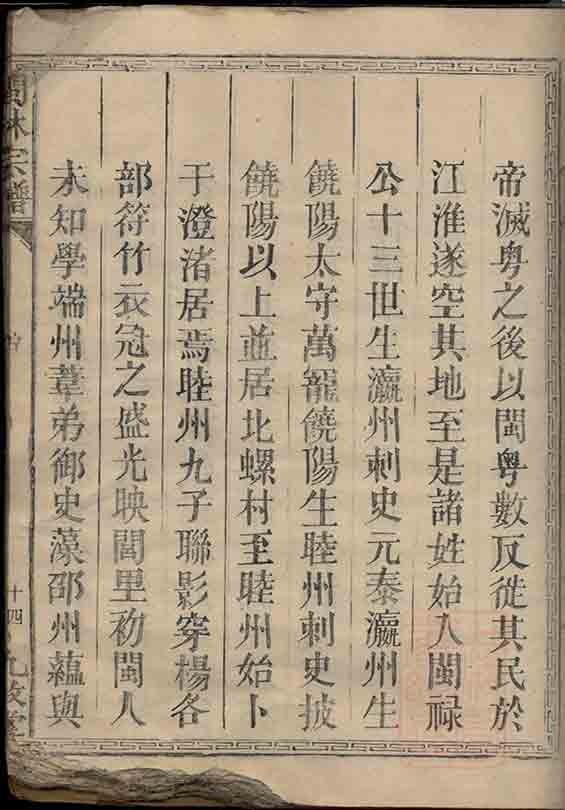 帝滅粤之後以閩粤數反徙其民於
江淮遂空其地至是諸姓始入閩禄
公十三世生瀛州刺史元泰瀛州生
饒陽太守萬寵饒陽生睦州刺史披
饒陽以上並居北螺村至睦州始卜
于澄渚居焉睦州九子聯影穿楊各
部符竹衣冠之盛光映閭里初閩人
未知學端州葦弟御史藻邵州蘊與
林宗譜
十四
九牧堂